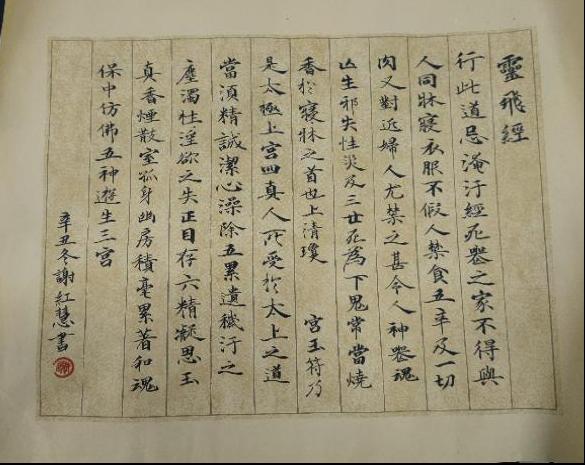 靈飛經
行此道忌淹汙經死喪之家不得與
人同牀寢衣服不假人禁食五辛及一切
肉又對近婦人尤禁之甚令人神喪魂
亾生邪失性災及三世死為下鬼常當燒
香於寢牀之首也上清瓊 宮玉符乃
是太極上宮四真人所受於太上之道
當須精誠潔心澡除五累遺穢汙之
塵濁杜淫欲之失正目存六精凝思玉
真香煙散室孤身幽房積毫累著和魂
保中仿佛五神遊生三宮
辛丑冬謝紅慧書